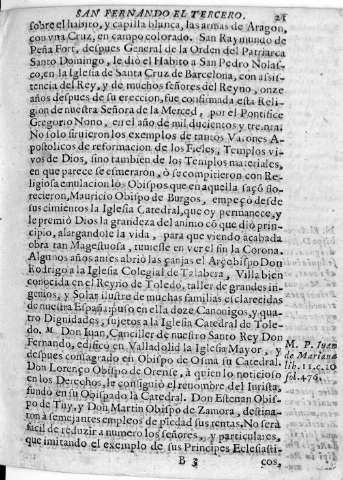 SAN FERNANDO EL TERCERO. 21
sobre el habito, y capilla blanca, las armas de Aragon,
con vna Cruz, en campo colorado. San Raymundo de
Peña Fort, despues General de la Orden del Patriarca
Santo Domingo, le dió el Habito a San Pedro Nolas-
co, en la Iglesia de Santa Cruz de Barcelona, con assis-
tencia del Rey, y de muchos señores del Reyno, onze
años despues de su ereccion, fue confirmada esta Reli-
gion de nuestra Señora de la Merced, por el Pontifice
Gregorio Nono, en el año de mil ducientos y treinta.
No solo siruieron los exemplos de tantos Varones A-
postolicos de reformacion de los Fieles, Templos vi-
vos de Dios, sino tambien de los Templos materiales,
en que parece se esmeraron, ò se compitieron con Re-
ligiosa emulacion los Obispos que en aquella saçõ flo-
recieron, Mauricio Obispo de Burgos, empeçò desde
sus cimientos la Iglesia Catedral, que oy permanece, y
le premiò Dios la grandeza del animo cõ que diò prin-
cipio, alargandole la vida, para que viendo acabada
obra tan Magestuosa, tuuiesse en ver el fin la Corona.
Algunos años antes abriò las çanjas el Arçobispo Don
Rodrigo a la Iglesia Colegial de Talabera, Villa bien
conocida en el Reyno de Toledo, taller de grandes in-
genios, y Solar ilustre de muchas familias esclarecidas
de nuestra España: puso en ella doze Canonigos, y qua-
tro Dignidades, sujetos a la Iglesia Catedral de Tole-
do. M Don Iuan, Canciller de nuestro Santo Rey Don
Fernando, edificò en Valladolid la Iglesia Mayor, y
despues consagrado en Obispo de Osma su Catedral.
Don Lorenço Obispo de Orense, à quien lo noticioso
en los Derechos, le consiguiò el renombre del Iurista,
fundò en su Obispado la Catedral. Don Esteuan Obis-
po de Tuy, y Don Martin Obispo de Zamora, destina-
ron a semejantes empleos de piedad sus rentas. No serà
facil de reduzir a numero los señores, y particulares,
que imitando el exemplo de sus Principes Eclesiasti-
B 3 cos,
M. P. Iuan
de Mariana
lib. 11. c. 10
fol. 476.